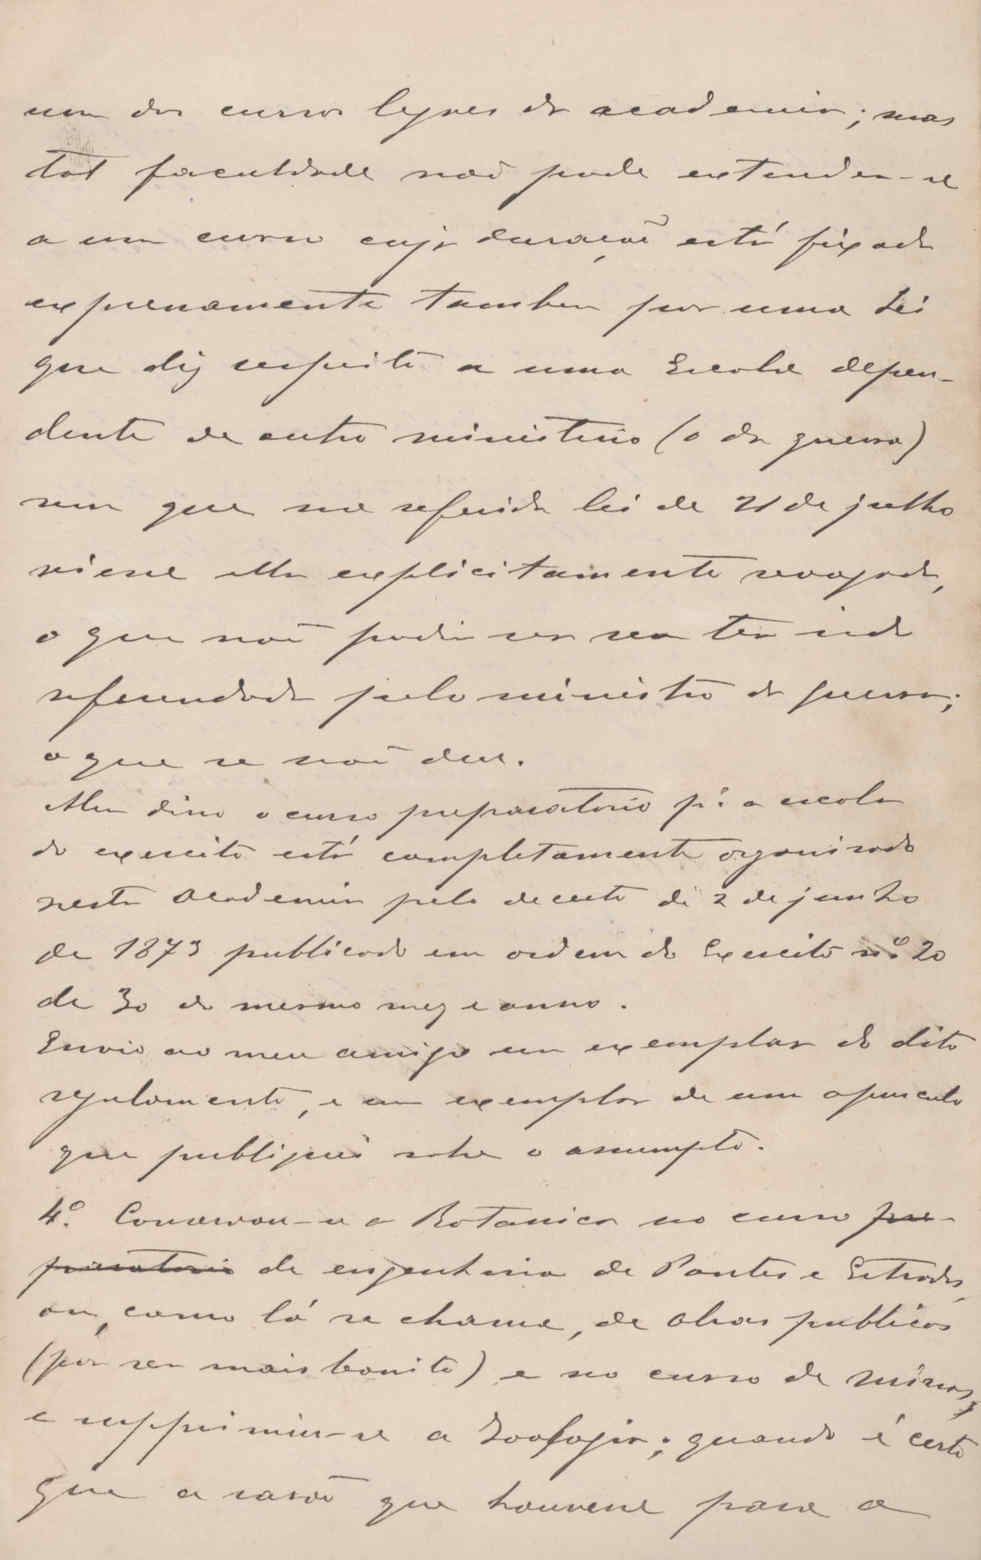 um dos cursos legaes da academia; mas
tal faculdade naõ pode extender-se
a um curso cuja duraçaõ está fixada
expressamente tambem por uma lei
que diz respeito a uma Escola depen-
dente de outro ministerio (o da guerra)
sem que na referida lei de 21 de julho
viesse ella explicitamente revogada,
o que naõ podia ser sem ter sido
referendada pelo ministro da guerra;
o que se naõ deu.
Alem disso o curso preparatorio pª a escola
do exercito está completamente organisado
nesta Academia pelo decreto de 2 de junho
de 1873 publicado em ordem do Exercito nº 20
de 30 do mesmo mez e anno.
Envio ao meu amigo um exemplar do dito
regulamento, e um exemplar de um opusculo
que publiquei sobre o assumpto.
4º. Conservou-se a Botanica no curso pre-
paratorio de engenheria de Pontes e Estradas,
ou, como lá se chama, de obras publicas
(por ser mais bonito) e no curso de Minas,
e supprimiu-se a Zoologia; quando é certo
que a rasaõ que houvesse para a